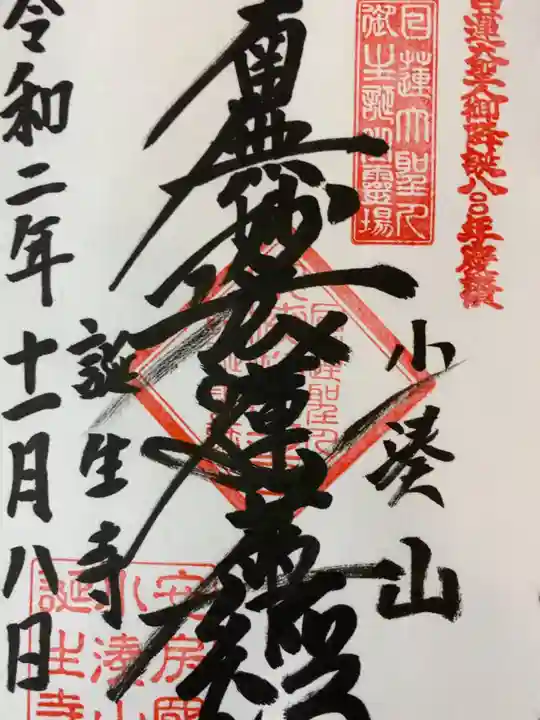 日蓮大聖人御降誕八〇〇年慶讃
日蓮大聖人
御生誕出霊場
小湊山
南無妙法蓮華経
誕生寺
令和二年十一月八日
安房國
小湊山
誕生寺